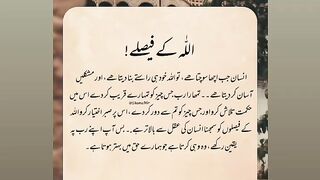 اللہ کے فیصلے!
انسان جب اچھا سوچتا ہے، تو اللہ خود ہی راستے بنا دیتا ہے، اور مشکلیں
آسان کر دیتا ہے۔۔ تمہارا رب جس چیز کو تمہارے قریب کر دے اس میں
حکمت تلاش کرو اور جس چیز کو تم سے دور کر دے، اس پر صبر اختیار کرو اللہ
کے فیصلوں کو سمجھنا انسان کی عقل سے بالاتر ہے۔۔ بس آپ اپنے رب پہ
یقین رکھے، وہ وہی کرتا ہے جو ہمارے حق میں بہتر ہوتا ہے۔